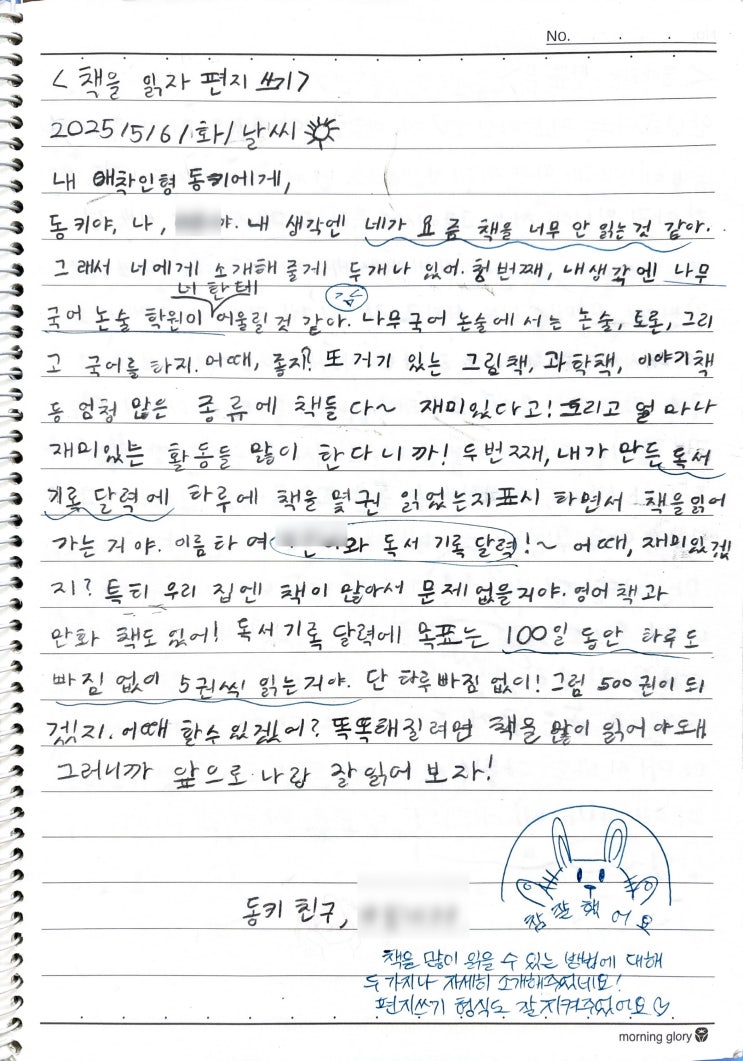 No.
< 책을 읽자 편지 쓰기>
2025/5/6/화/날씨
내 애착인형 동키에게,
동키야, 나, 야. 내 생각엔 네가 요즘 책을 너무 안 읽는 것 같아.
그래서 너에게 소개해 줄게 두개나 있어. 첫번째, 내생각엔 나무
너한테
국어 논술 학원이 어울릴 것 같아. 나무국어 논술에서는 논술, 토론, 그리
고 국어를 하지. 어때, 좋지? 또 거기 있는 그림책, 과학책, 이야기책
등 엄청 많은 종류에 책들 다~ 재미있다고! 그리고 얼마나
재미있는 활동들 많이 한다니까! 두번째, 내가 만든 독서
기록 달력에 하루에 책을 몇권 읽었는지표시 하면서 책을읽어
가는거야. 이름하여 와 독서 기록 달력!~ 어때, 재미있겠
지? 특히 우리 집엔 책이 많아서 문제없을거야. 영어 책과
만화 책도 있어! 독서기록 달력에 목표는 100일 동안 하루도
빠짐 없이 5권씩 읽는거야. 단 하루빠짐 없이! 그럼 500권이 되
겠지. 어때 할수있겠어? 똑똑해질려면 책을 많이 읽어야돼
그러니까 앞으로 나랑 잘읽어 보자!
동키 친구,
참 잘 했 어 요
책을 많이 읽을 수 있는 방법에 대해
두 가지나 자세히 소개해주었네요!
편지쓰기 형식도 잘 지켜주었어요♡
morning glory